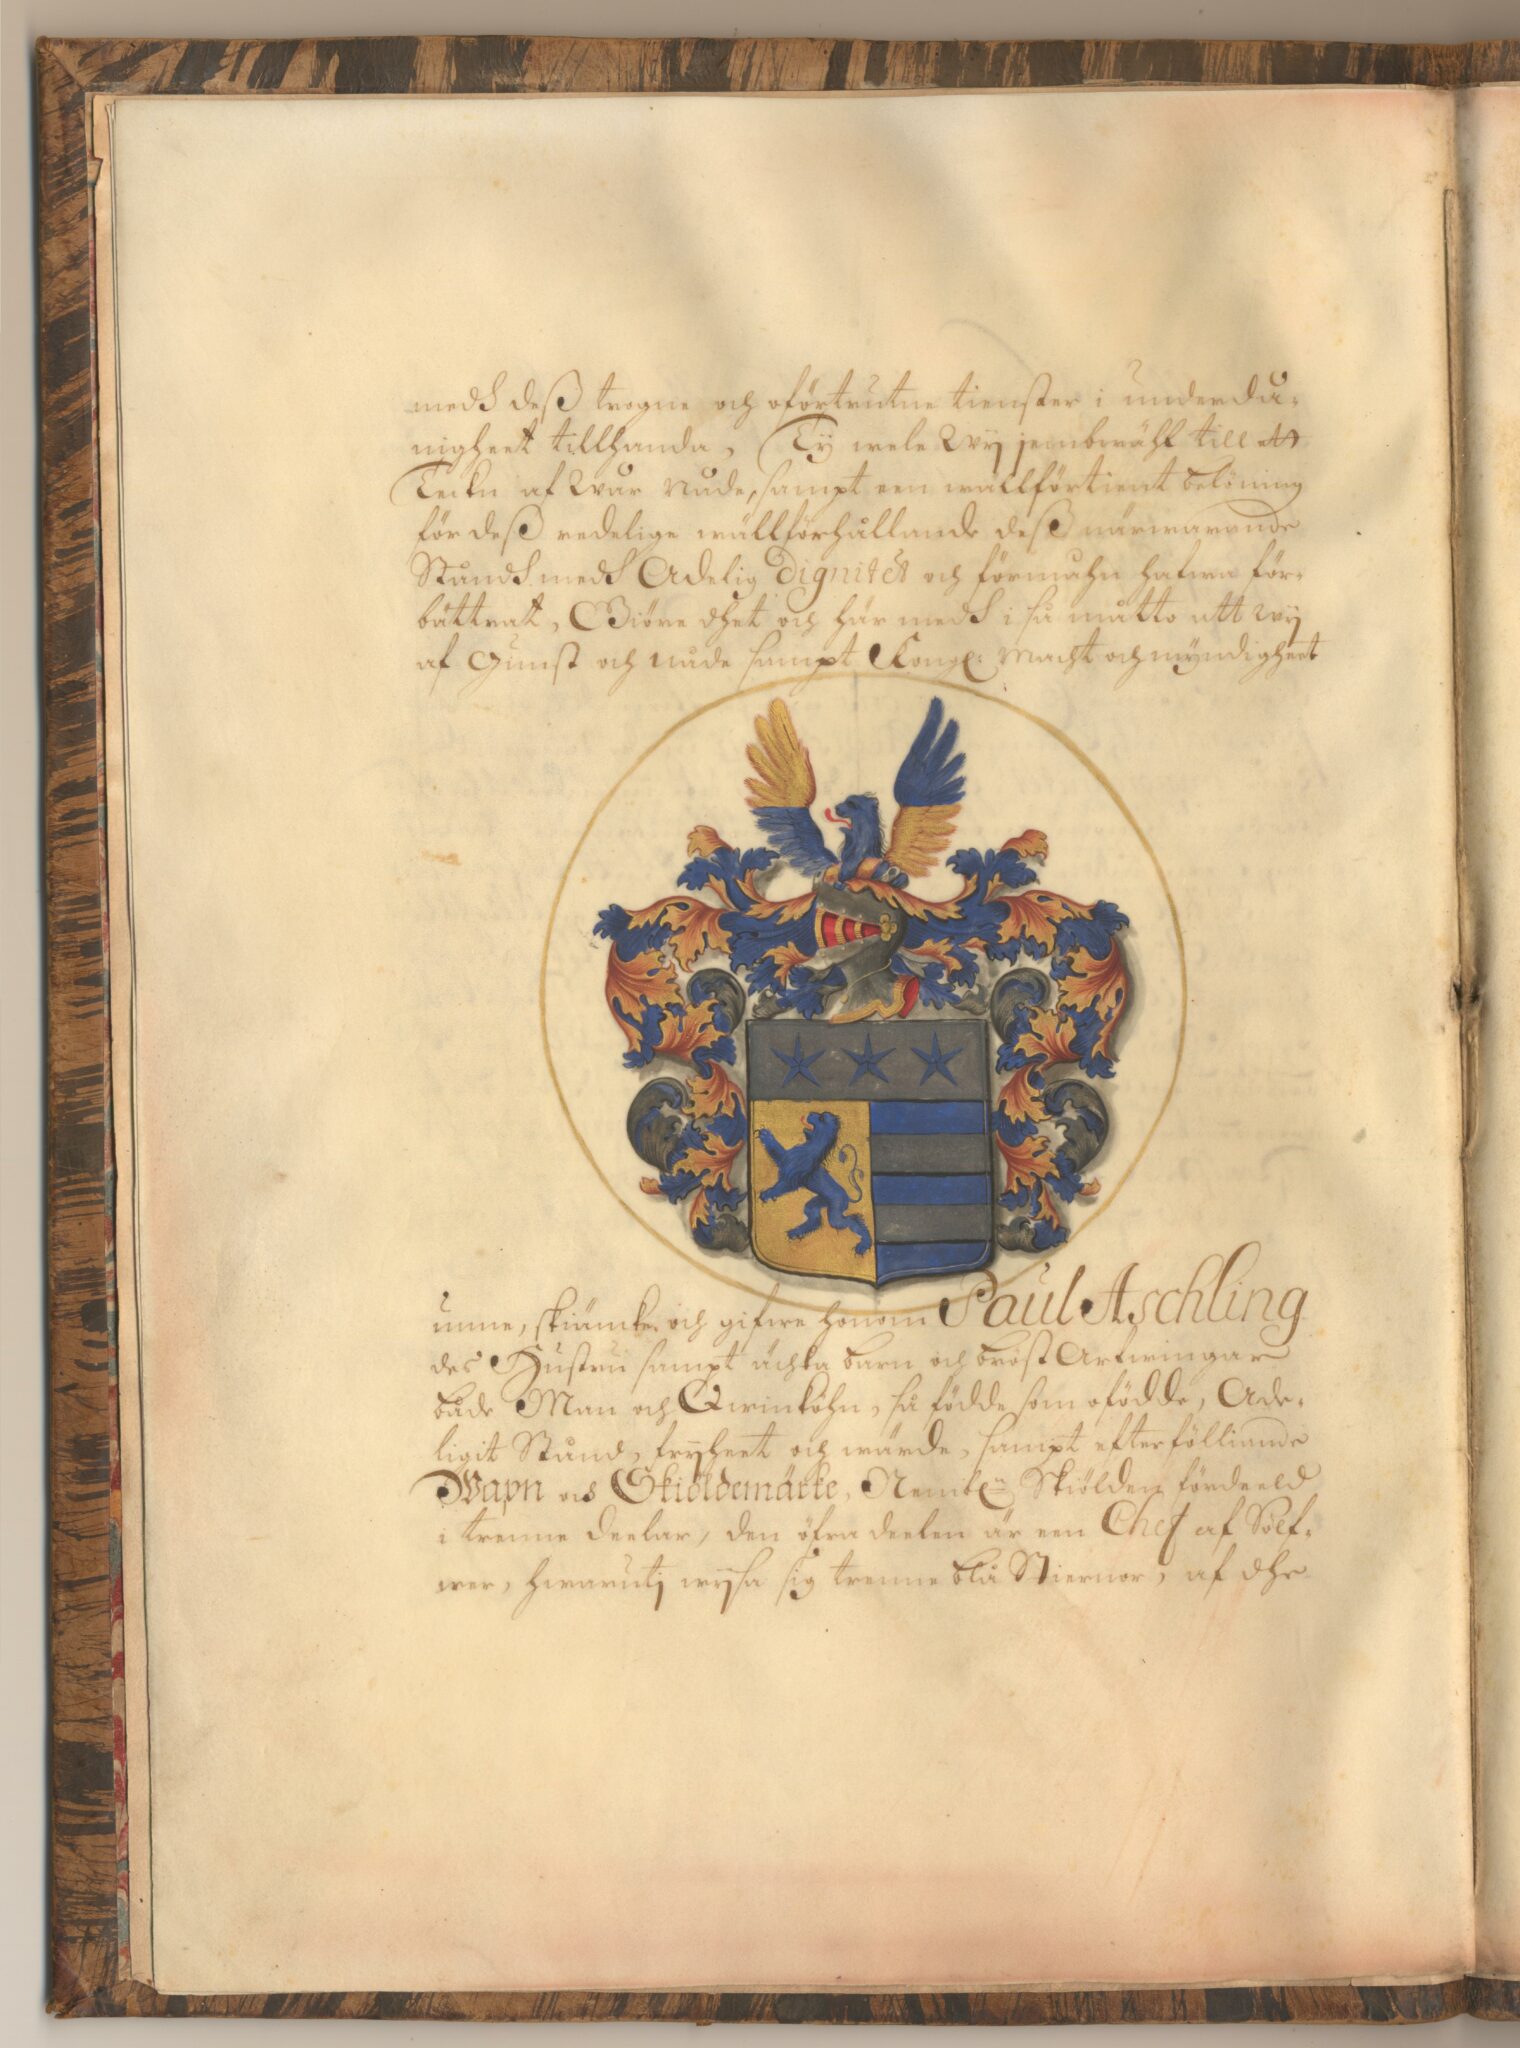 medh deß trogne och oförtrutne tienster i underdå-
nigheet tillhanda, Ty wele Wij jembwähl till ett
Teckn af Wår Nåde, sampt een wällförtient belöning
för deß redelige wällförhållande deß närwarande
Ståndh medh Adelig Dignitet och förmåhn hafwa för-
bättrat, Giöre dhet och här medh i så måtto att Wij
af Gunst och nåde sampt Kongl: Macht och myndigheet
unne, skiäncke och gifwe honom Paul Aschling
des Hustru sampt ächta barn och bröst Arfwingar
både Man och Qwinköhn, så födde som ofödde, Ade-
ligit Stånd, fryheet och wärde, sampt efterfölliande
Wapn och Skiöldemärke, Nembl:n Skiölden fördeeld
i trenne deelar, den öfra deelen är een Chef af Sölf-
wer, hwaruti wysa sig trenne blå Stiernor, af dhe